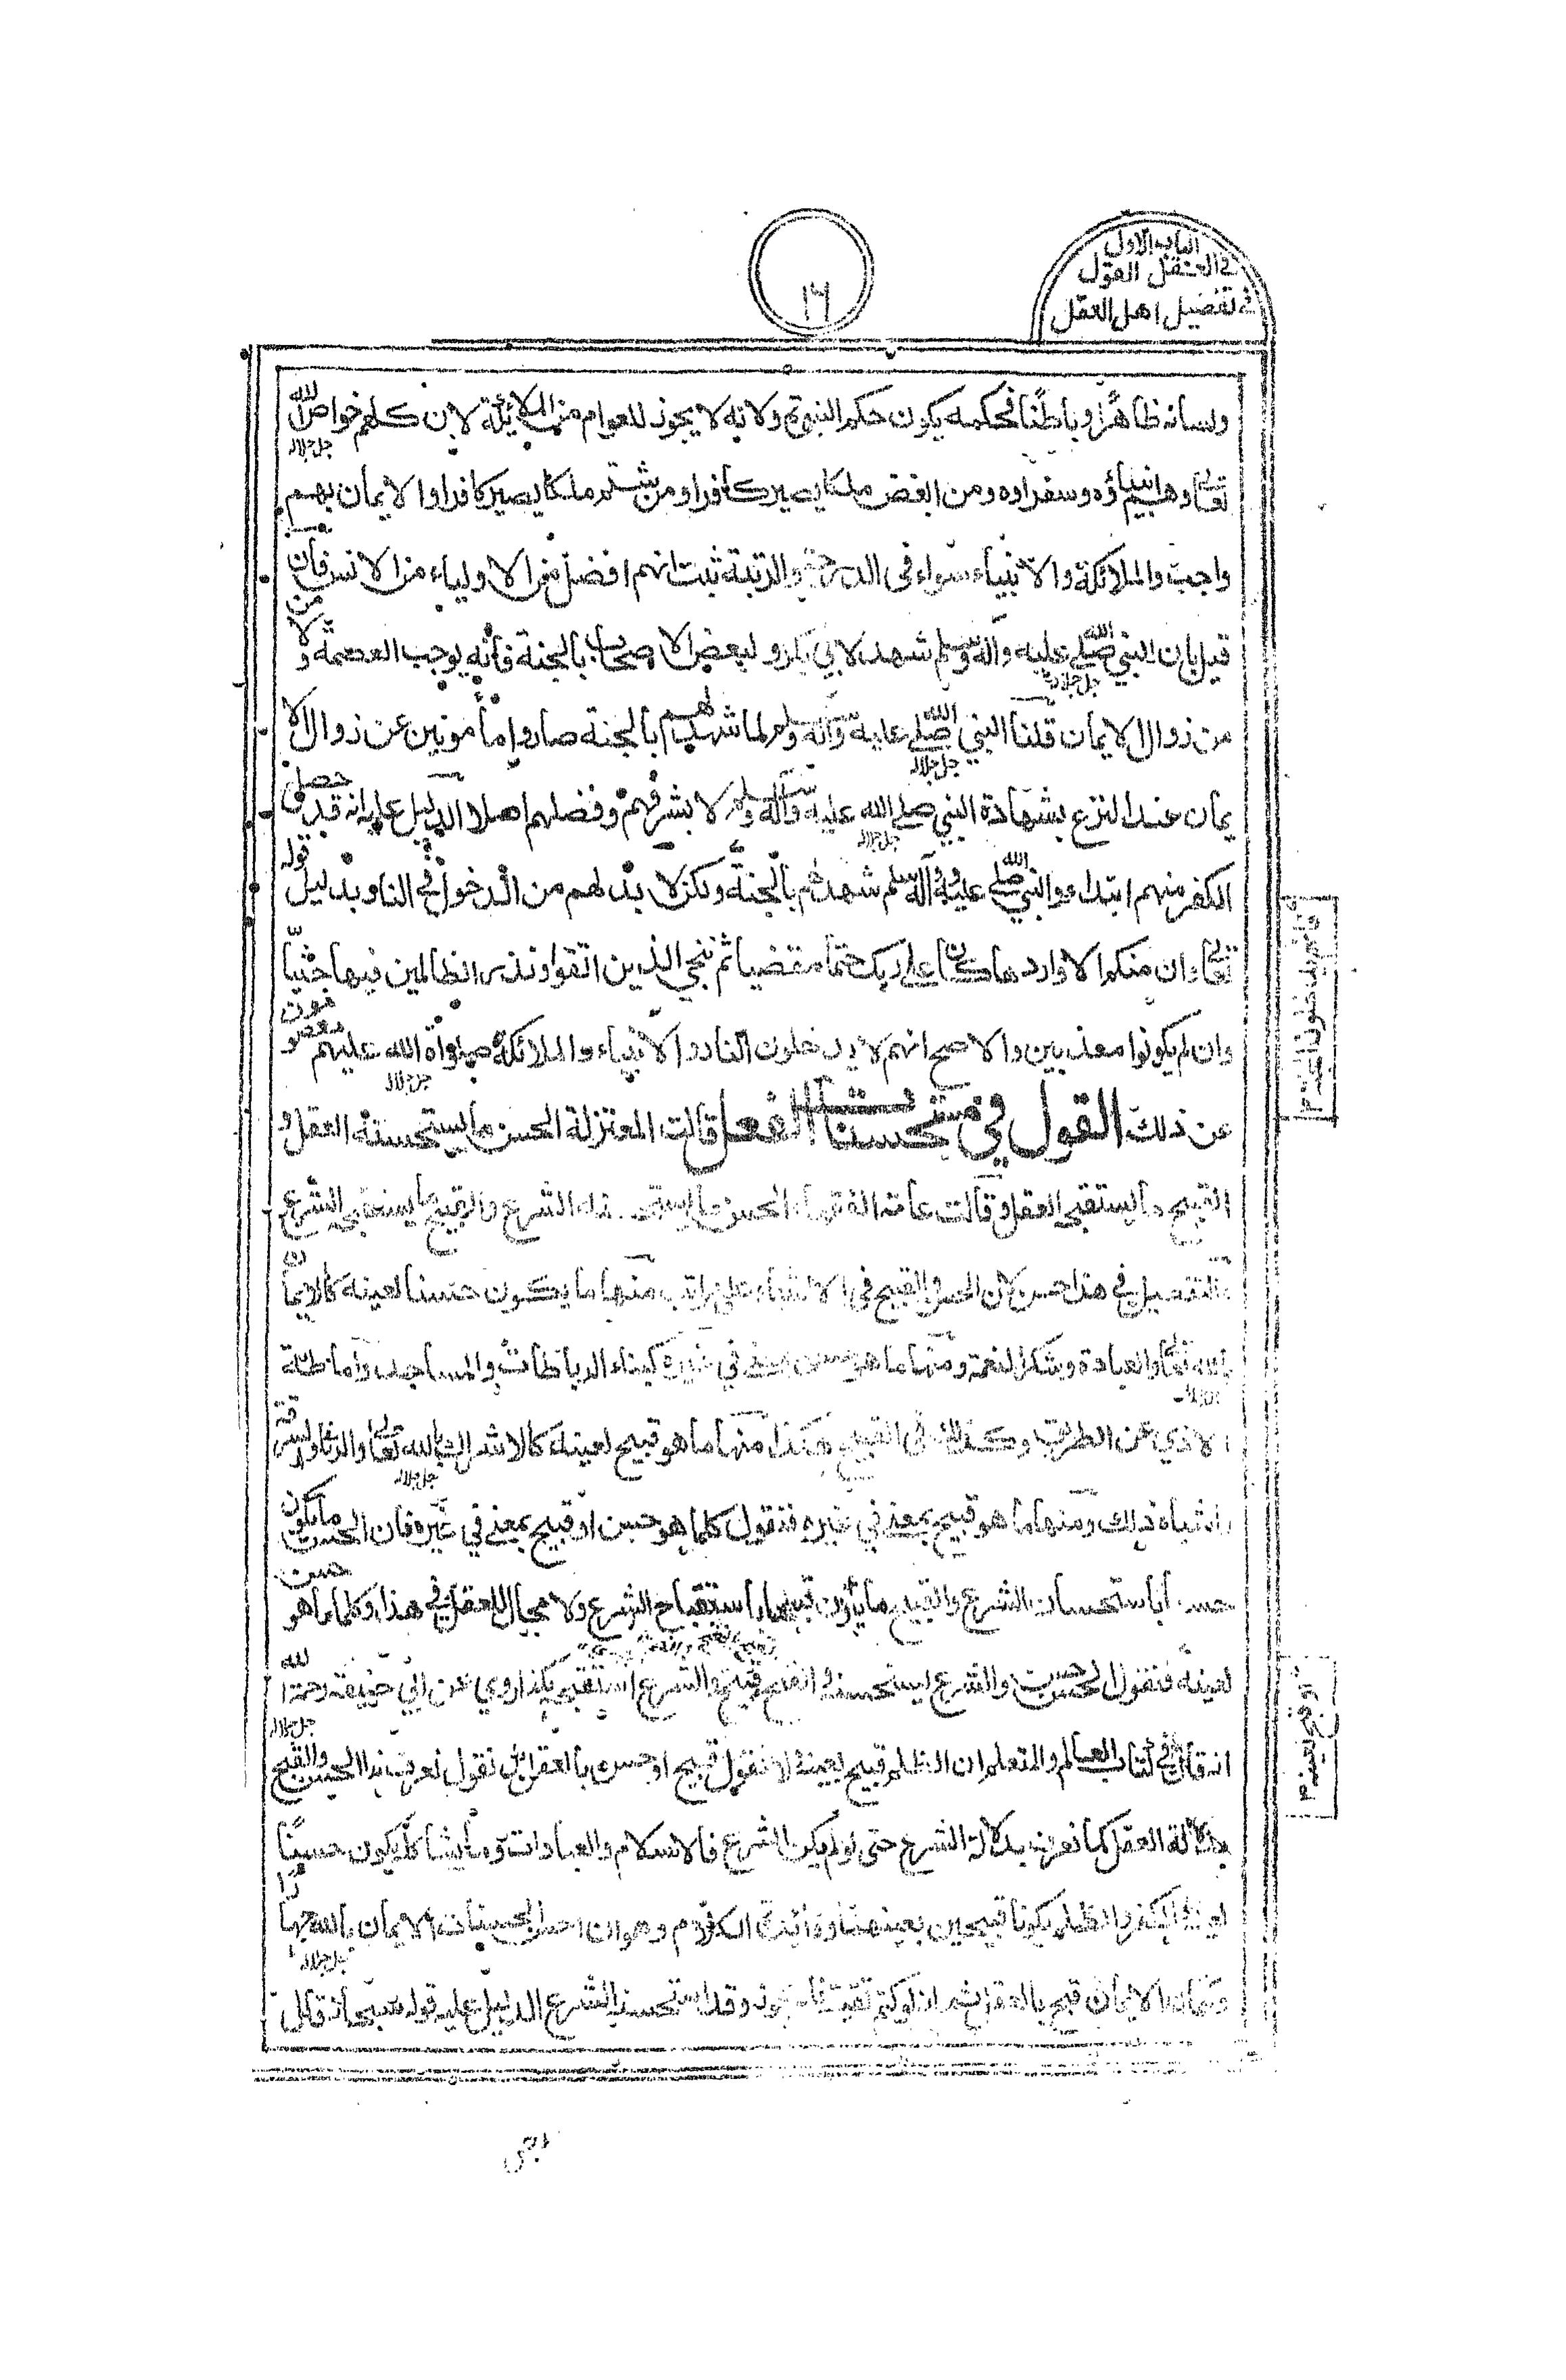 الباب الاول
فى العقل القول
فى تفضيل اهل العقل
١٦
ولسانه ظاهرًا وباطنًا فحكمه يكون حكم النبوة ولانه لا يجوز للعوام من الملائكة لان كلهم خواص الله
جل جلاله
تعالى وانبياؤه وسفراوه ومن ابغض ملكا يصير كافرا ومن شتم ملكا يصير كافرا والايمان بهم
واجب والملائكة والانبياء سواء فى الدرجة والرتبة ثبت انهم افضل من الاولياء من الانس فان
قيل بان النبي صلى الله عليه وآله وسلم شهد لابي بكر ولبعض الاصحاب بالجنة فانه يوجب العصمة ولا من
جل جلاله
من زوال الايمان قلنا النبي صلى الله عليه وآله وسلم لما شهد لهم بالجنة صاروا مأمونين عن زوال الا
جل جلاله
يمان عند النزع بشهادة النبي صلى الله عليه وآله وسلم لا بشرفهم وفضلهم اصلا الدليل عليه انه قد حصل
جل جلاله
الكفر منهم ابتداء والنبي صلى الله عليه وآله وسلم شهد لهم بالجنة ولكن لا بد لهم من الدخول فى النار بدليل قوله
تعالى وان منكم الا واردها كان على ربك حتما مقضيا ثم ننجي الذين اتقوا ونذر الظالمين فيها جثيا
وان لم يكونوا معذبين والاصح انهم لا يدخلون النار والانبياء والملائكة صلواة الله عليهم معصومون
جل جلاله
عن ذلك القول في مستحسنات الفعل قالت المعتزلة الحسن ما يستحسنه العقل و
القبيح ما يستقبحه العقل وقالت عامة الفقهاء الحسن ما يستحسنه الشرع والقبيح ما يستقبحه الشرع
والتفصيل في هذا حسن لان الحسن والقبيح فى الاشياء على مراتب منها ما يكون حسنا لعينه كالايمان
بالله تعالى والعبادة وشكر النعمة ومنها ما هو حسن بمعنى في غيره كبناء الرباطات والمساجد واماطة
جل جلاله
الاذي عن الطريق وكذلك فى القبيح هكذا منها ما هو قبيح لعينه كالاشراك بالله تعالى والزنا والسرقة
جل جلاله
واشباه ذلك ومنها ما هو قبيح بمعنى في غيره فنقول كلما هو حسن او قبيح بمعنى في غيره فان الحسن ما يكون
حسنا باستحسان الشرع والقبيح ما يكون قبيحا باستقباح الشرع ولا مجال للعقل في هذا وكلما ما هو حسن
لعينه فنقول الحسن حسن والشرع يستحسنه والقبيح قبيح والشرع استقبحه هكذا روي عن ابي حنيفة رحمة الله
جل جلاله
انه قال في كتاب العالم والمتعلم ان الظلم قبيح بعينه لا نقول قبيح او حسن بالعقل بل نقول نعرف هذا الحسن والقبيح
بدلالة العقل كما نعرف بدلالة الشرع حتى لو لم يكن الشرع فالاسلام والعبادات وما يشاكله يكون حسنًا
لعينه والكفر والظلم يكونا قبيحين بعينهما وفائدة الكلام وهو ان اصل المحسنات الايمان بالله جهارًا
جل جلاله
وكتمان الايمان قبيح بالعقل ثم انه لوكتم تقية فانه يجوز وقد استحسنه الشرع الدليل عليه قوله سبحانه قال